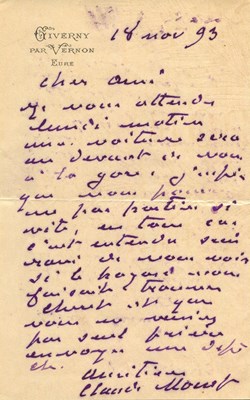 GIVERNY
PAR VERNON
EURE
18 nov 93
Cher ami
Je vous attends
lundi matin
une voiture sera
au devant de vous
à la gare j'espère
que vous
ne pas partir si
vite, en tous cas
c'est entendu
de vous voir
si le hazard vous
faisait trouver
et que
vous ne veniez
pas seul prière
envoyer une dépê
che.
Amitiés
Claude Monet